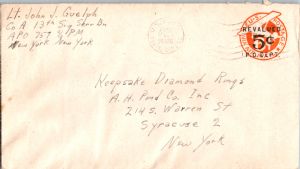 Lt. John J. Guelph
Co A 13th Sig Serv Bn
APO 757 % PM
New York New York
REVALUED
5¢
P.O. DEPT.
Keepsake Diamond Rings
A.H. Pond Co. Inc
214 S. Warren St
Syracuse 2
New York